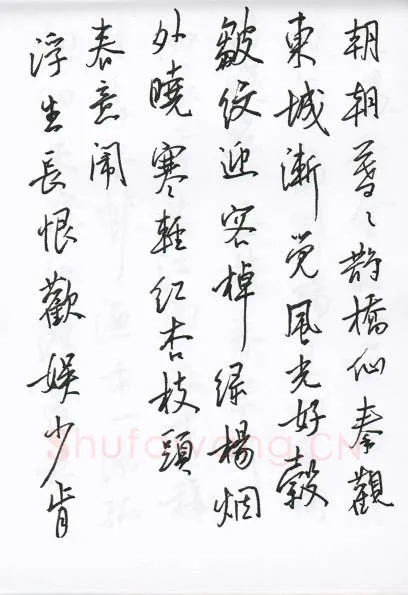 朝朝暮々鹊橋仙秦觀
東城漸觉風光好縠
皺纹迎客棹绿楊烟
外曉寒輕红杏枝頭
春意闹
浮生長恨歡娱少肯
Shufawang.CN